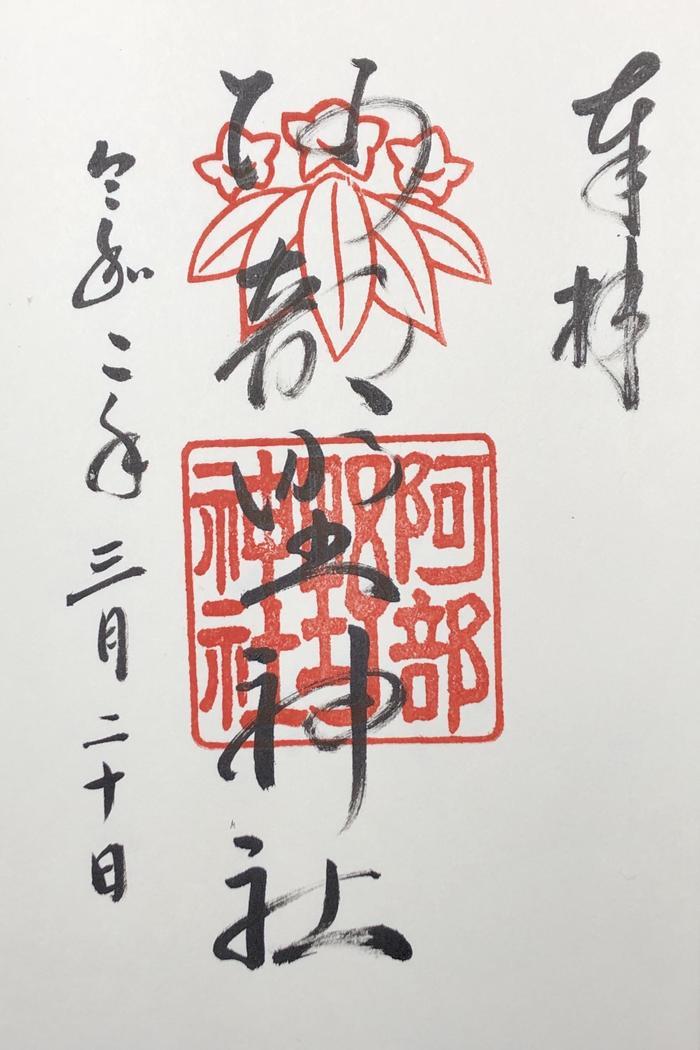 奉拝
阿部野神社
阿部野神社
令和二年三月二十日